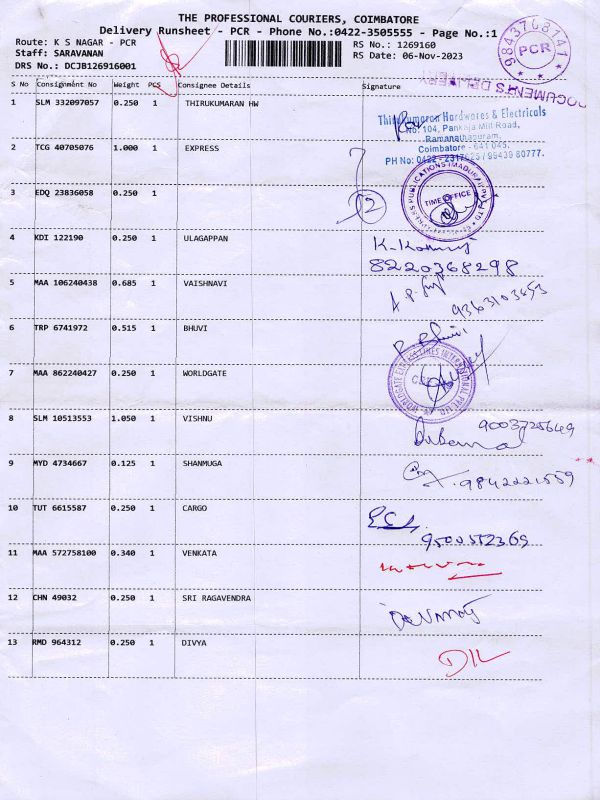 THE PROFESSIONAL COURIERS, COIMBATORE
Delivery Runsheet - PCR - Phone No.:0422-3505555 - Page No.:1
Route: K S NAGAR - PCR
RS No.: 1269160
Staff: SARAVANAN
RS Date: 06-Nov-2023
DRS No.: DCJB126916001
9843768141
PCR
DOCUMENTS DELIVERY
S No Consignment No Weight PCS Consignee Details Signature
1 SLM 332097057 0.250 1 THIRUKUMARAN HW
Thirukumaran Hardwares & Electricals
No. 104, Pankaja Mill Road,
Ramanathapuram,
Coimbatore - 641 045.
PH No: 0422 - 2317625 / 95439 80777.
2 TCG 40705076 1.000 1 EXPRESS
EXPRESS PUBLICATIONS (MADURAI) PVT LTD
TIME OFFICE
3 EDQ 23836058 0.250 1
12
4 KDI 122190 0.250 1 ULAGAPPAN
8220368298
5 MAA 106240438 0.685 1 VAISHNAVI
9363103453
6 TRP 6741972 0.515 1 BHUVI
R Bhuvi
7 MAA 862240427 0.250 1 WORLDGATE
8 SLM 10513553 1.050 1 VISHNU
9003725649
9 MYD 4734667 0.125 1 SHANMUGA
9842221559
10 TUT 6615587 0.250 1 CARGO
9500552369
11 MAA 572758100 0.340 1 VENKATA
12 CHN 49032 0.250 1 SRI RAGAVENDRA
13 RMD 964312 0.250 1 DIVYA